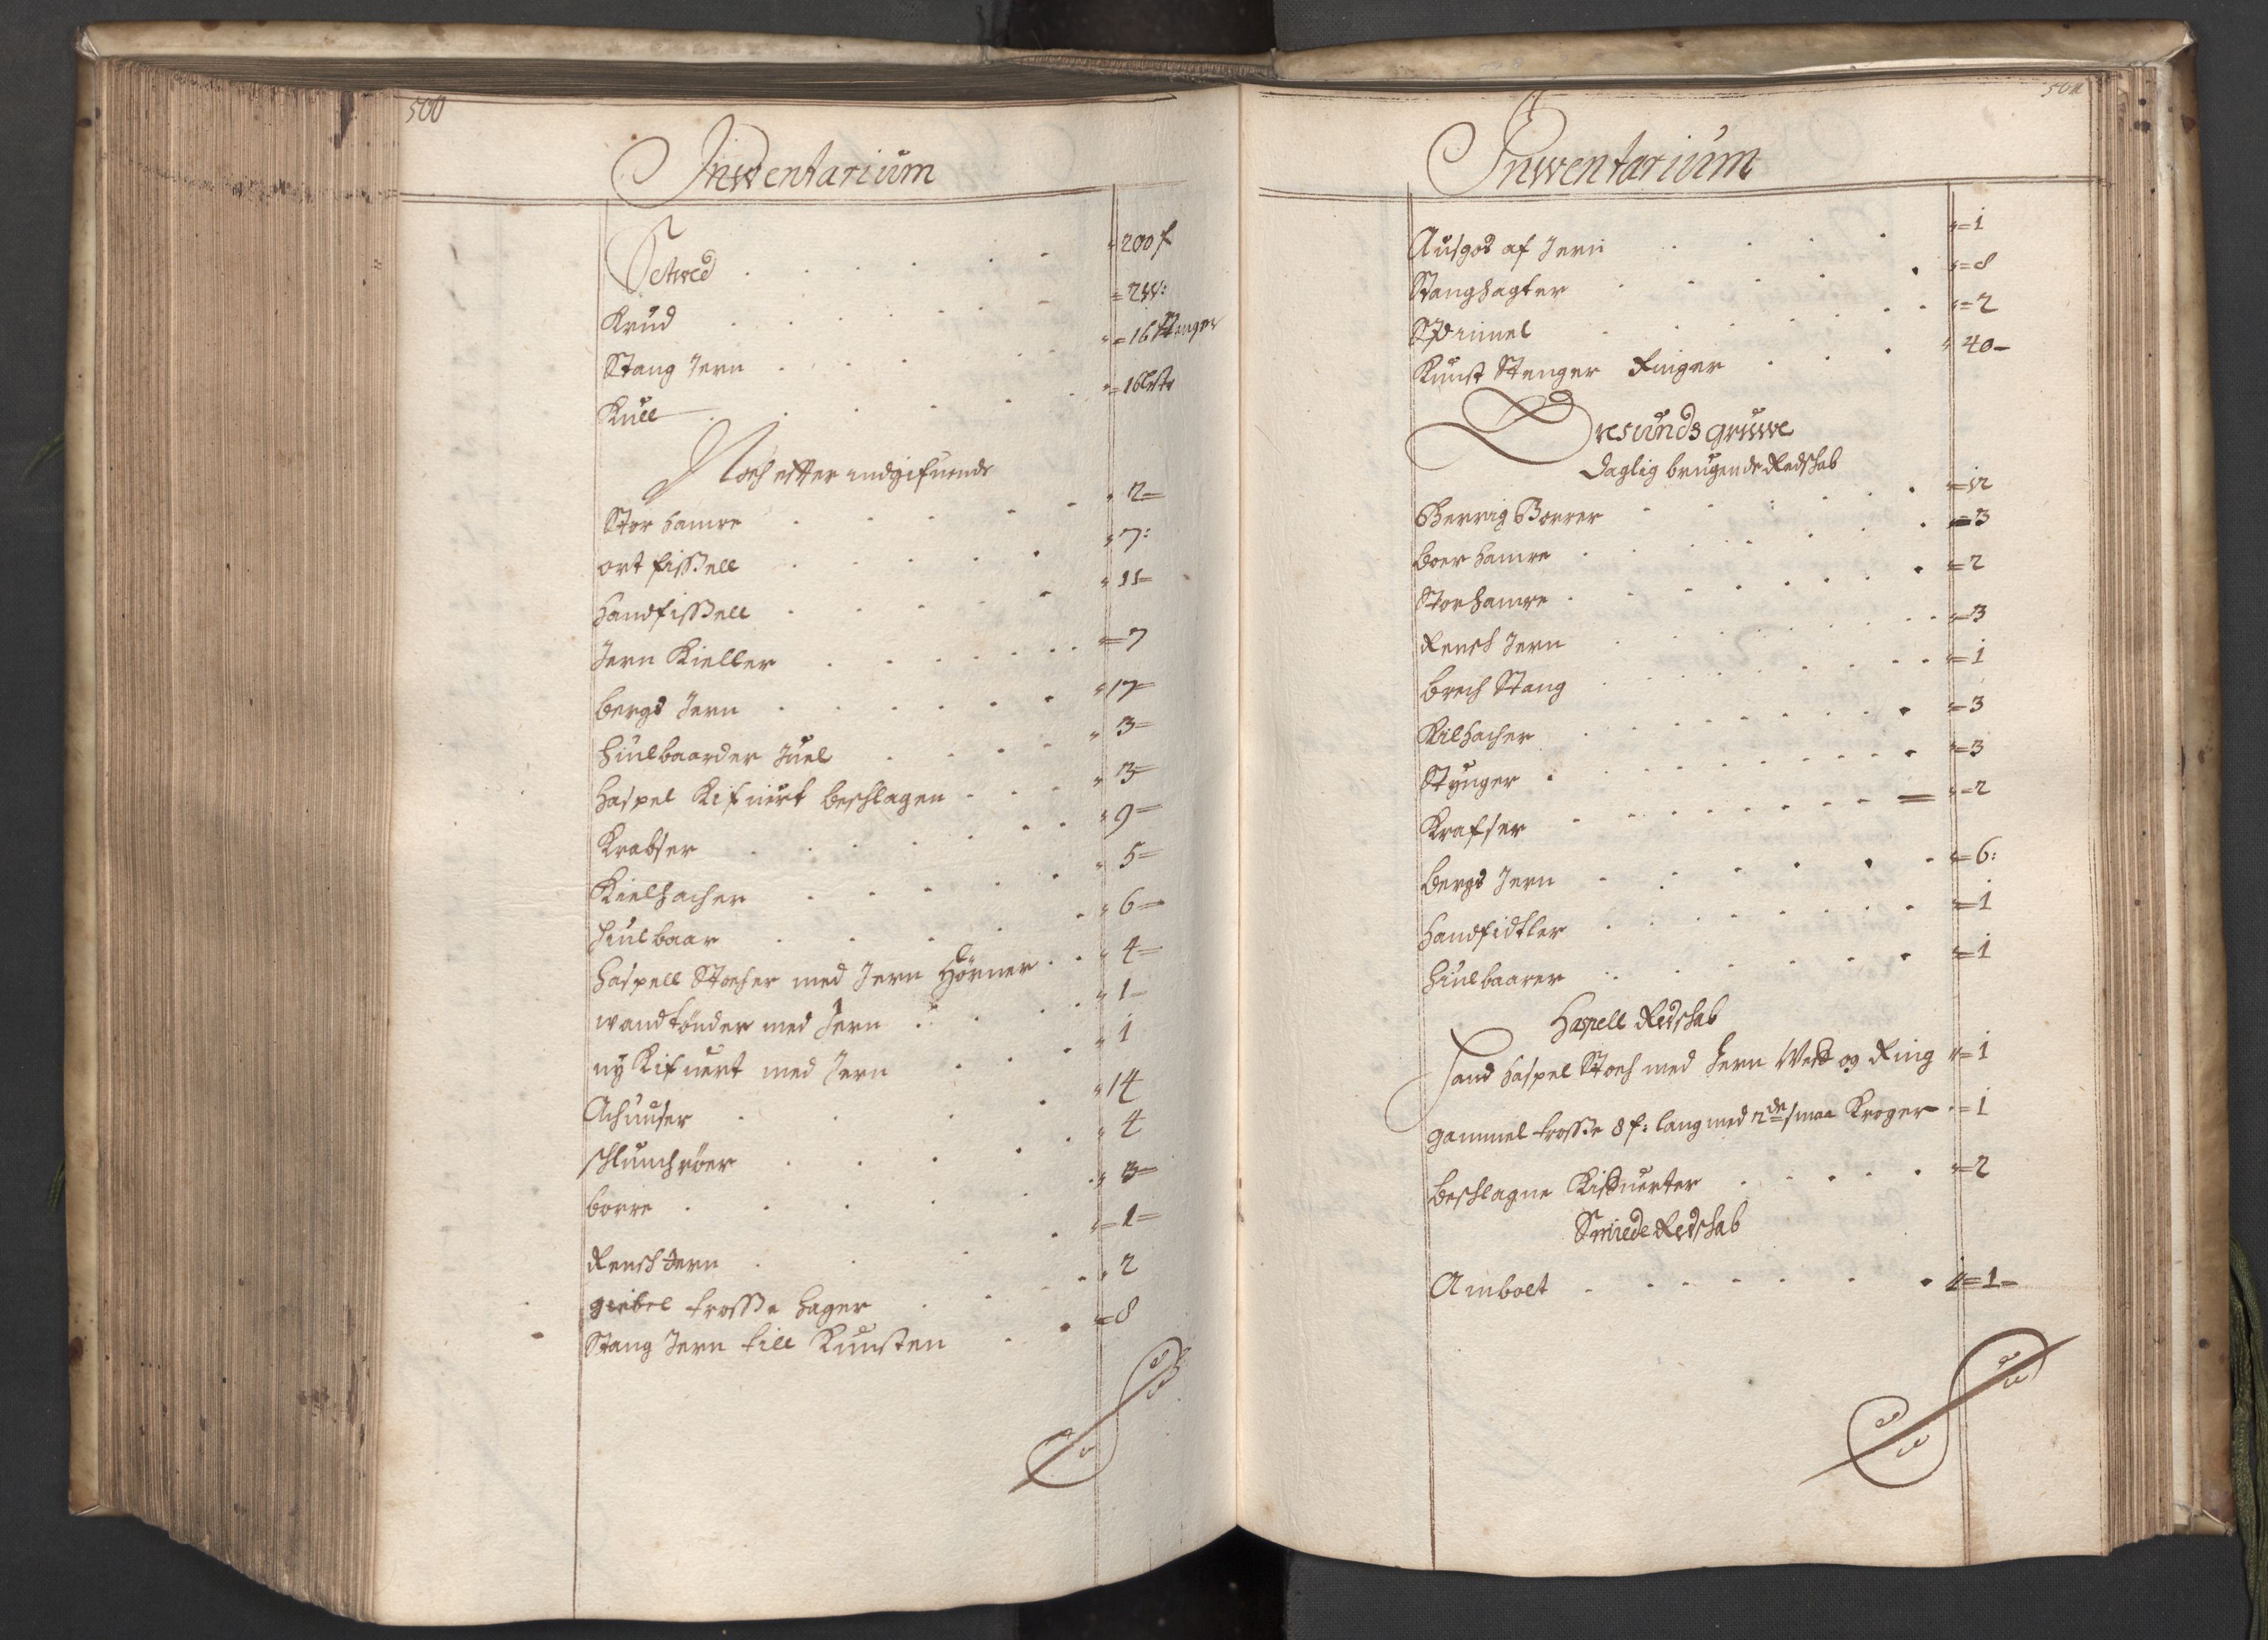 500
Inwentarium
Setwed 200 f
Krud = 2 W:
Stang Jern = 16 Stenger
Kull = 16 lester
Noch effter indgifuende
Stor hamre 2 =
ort fissell 7:
handfissell 11 =
Jern Kieller = 7
bergs Jern 17 =
hiulbaarder Juel 3 =
haspel Kifuert beschlagen 3 =
Krabser 9 =
Kielhacher 5 =
hiulbaar 6 =
haspell Stocher med Jern Hörner 4 =
wandtönder med Jern 1 =
ny Kifuert med Jern 1
Achuuser 14
schlunchröer 4
borre 3 =
Rensch Jern = 1 =
giebel trosse hager 2
Stang Jern till Kunsten = 8
501
Inwentarium
Ausgos af Jern = 1
Stanghagter = 8
Spimel = 2
Kunst Stenger Ringer 40 -
Dresunds gruwe
daglig brugende Redschab
Bherrig Borrer = 12
boer hamre = 3
Storhamre = 2
Rensch Jern = 3
brech Stang = 1
Kilhacher = 3
Stynger = 3
Krafser = 2
bergs Jern = 6:
handfidtler = 1
hiulbaarer = 1
Haspell Redschab
Hand haspel Stoch med Jern Weld og Ring = 1
gammel trosse 8 f: lang med 2de smaa Kroger = 1
beschlagne Kiskuerter = 2
Smiede Redschab
Ambolt = 1 =